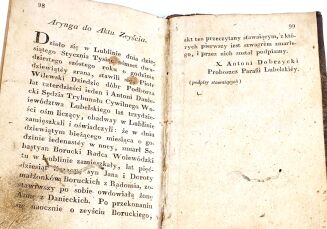 98
Arynga do Aktu Zeyścia.
Działo się w Lublinie dnia dzie-
siątego Stycznia Tysiąc
dziesiątego szóstego roku o godzinie
dziewiątéy zrana, stawili się Piotr
Wilewski Dziedzic dóbr Podbora
lat czterdzieści ieden i Antoni Danie-
cki Sędzia Trybunału Cywilnego Wo-
iewództwa Lubelskiego lat trzydzie-
ści ośm liczący, obadway w Lublinie
zamieszkali i oświadczyli: że w dniu
dziewiątym bieżącego miesiąca o go-
dzinie iedenastéy w nocy, zmarł Se-
bastyan Borucki Radca Woiewódzki
tu w Lublinie zamieszkały, lat pięć-
dziesiąt syn Jana i Doroty
małżonków Boruckich z Radomia, zo-
stawiwszy po sobie owdowiałą żonę
Annę z Danieckich. Po przekonaniu
się naocznie o zeyściu Boruckiego,
99
akt ten przeczytany stawaiącym, z któ-
rych pierwszy iest szwagrem zmarłe-
go, i przez nich został podpisany.
X. Antoni Dobrzycki
Proboszcz Parafii Lubelskiéy.
(podpisy stawaiących)